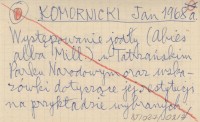 KOMORNICKI Jan 1968a
Występowanie jodły (Abies
alba (Mill) w Tatrzańskim
Parku Narodowym oraz wska-
zówki dotyczące jej restytucji
na przykładzie wybranych